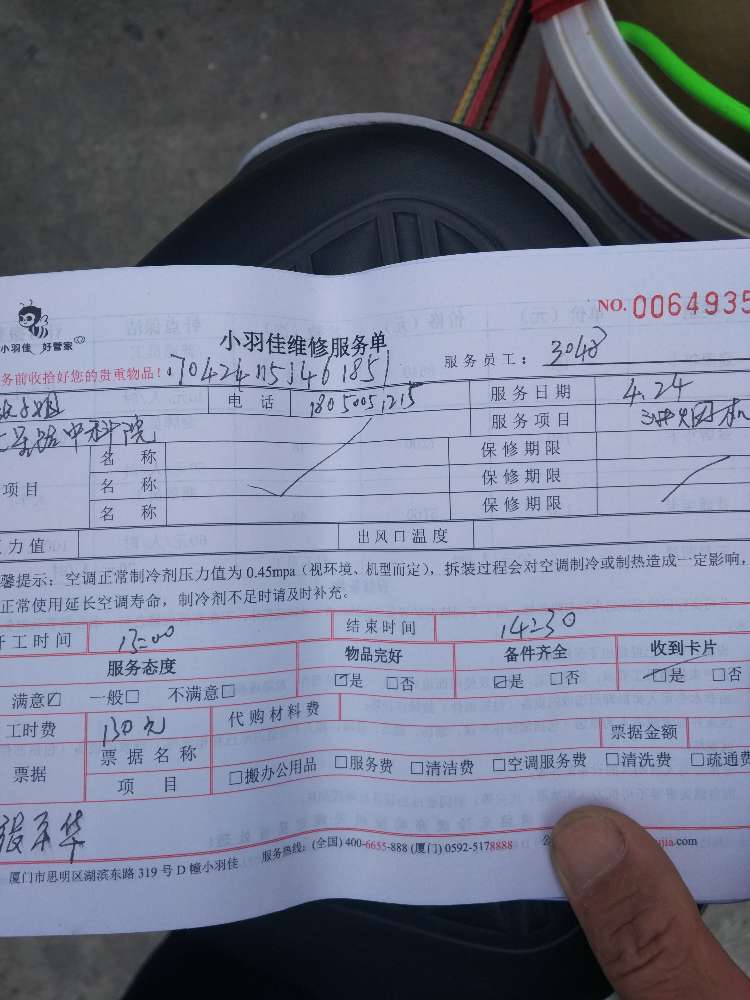 NO. 0064935
小羽佳 好管家
小羽佳维修服务单
服务员工: 3048
务前收拾好您的贵重物品!
1704241153461851
小姐 电话 18050051215 服务日期 4.24
中科院 服务项目 洗烟机
名称 保修期限
项目 名称 保修期限
名称 保修期限
力值 出风口温度
馨提示:空调正常制冷剂压力值为 0.45mpa(视环境、机型而定),拆装过程会对空调制冷或制热造成一定影响,
正常使用延长空调寿命,制冷剂不足时请及时补充。
开工时间 13=00 结束时间 14=30
服务态度 物品完好 备件齐全 收到卡片
满意☑ 一般□ 不满意□ ☑是 □否 ☑是 □否 □是 □否
工时费 130元 代购材料费 票据金额
票据 票据名称
项目 □搬办公用品 □服务费 □清洁费 □空调服务费 □清洗费 □疏通费
华
厦门市思明区湖滨东路 319 号 D 幢小羽佳 服务热线:(全国) 400-6655-888 (厦门) 0592-5178888 jia.com